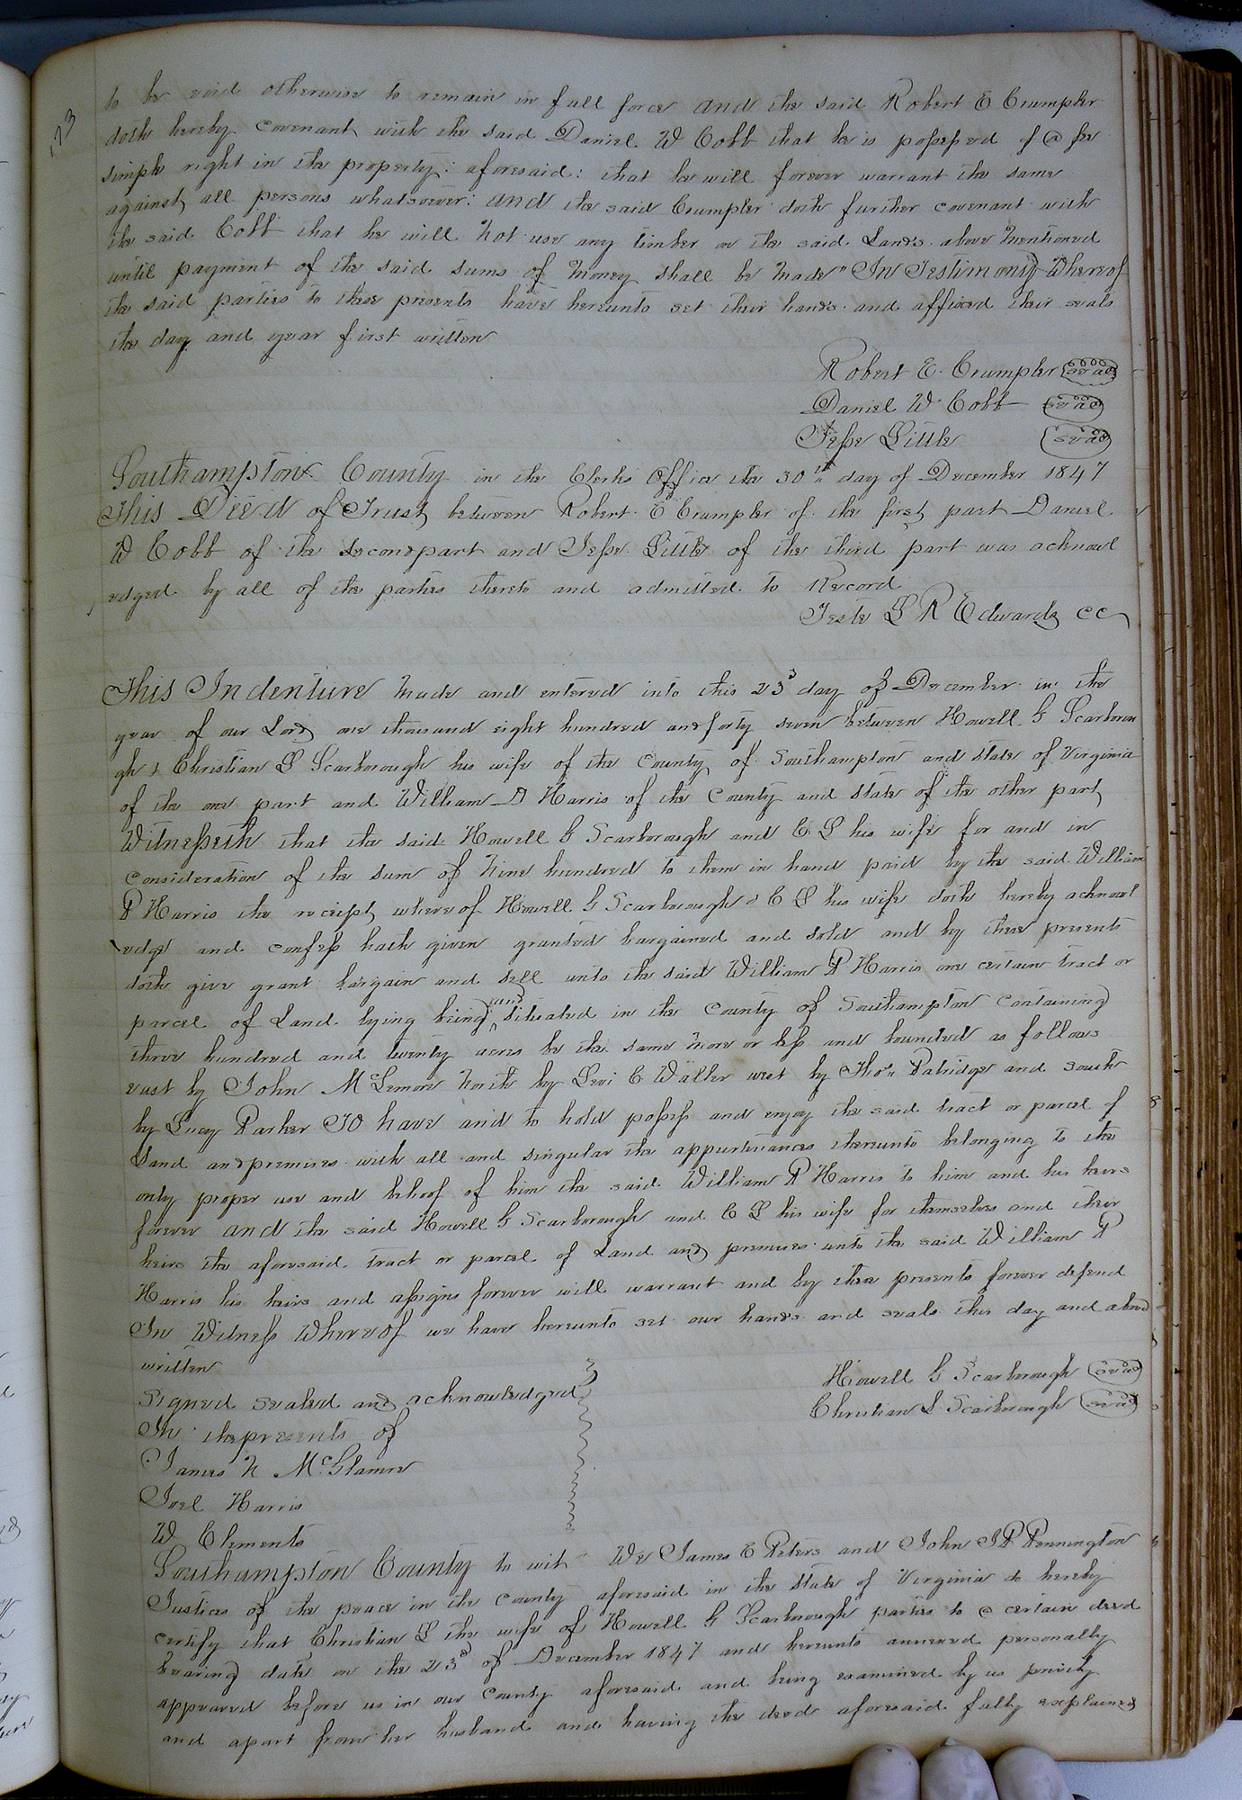 173
to be void otherwise to remain in full force and the said Robert E Crumpler
doth hereby covenant with the said Daniel W Cobb that he is possessed of a fee
simple right in the property: aforesaid: that he will forever warrant the same
against all persons whatsoever: and the said Crumpler doth further covenant with
the said Cobb that he will not use any timber on the said Lands above mentioned
until payment of the said sums of money shall be made" In Testimony Whereof
the said parties to these presents have hereunto set their hands and affixed their seals
the day and year first written
Robert E. Crumpler seal
Daniel W Cobb seal
Jesse Little seal
Southampton County in the Clerks Office the 30th day of December 1847
This Deed of Trust between Robert E Crumpler of the first part Daniel
W Cobb of the second part and Jesse Little of the third part was acknowl
edged by all of the parties thereto and admitted to Record
Teste L R Edwards cc
This Indenture made and entered into this 23d day of December in the
year of our Lord one thousand eight hundred and forty seven between Howell G Scarborou
gh & Christian L Scarborough his wife of the County of Southampton and State of Virginia
of the one part and William P Harris of the County and State of the other part
Witnesseth that the said Howell G Scarborough and C L his wife for and in
consideration of the sum of nine hundred to them in hand paid by the said William
P Harris the receipt whereof Howell G Scarborough & C L his wife doth hereby acknowl
edge and confess hath given granted bargained and sold and by these presents
doth give grant bargain and sell unto the said William P Harris one certain tract or
parcel of Land lying being and situated in the County of Southampton containing
three hundred and twenty acres be the same more or less and bounded as follows
east by John McLemore North by Levi C Waller west by Thos Patridge and south
by Lucy Parker To have and to hold possess and enjoy the said tract or parcel of
Land and premises with all and singular the appurtenances thereunto belonging to the
only proper use and behoof of him the said William P Harris to him and his heirs
forever and the said Howell G Scarborough and C L his wife for themselves and their
heirs the aforesaid tract or parcel of Land and premises unto the said William P
Harris his heirs and assigns forever will warrant and by these presents forever defend
In Witness Whereof we have hereunto set our hands and seals this day and above
written
Howell G Scarborough seal
Christian L Scarborough seal
Signed sealed and acknowledged
In the presents of
James N McGlamre
Joel Harris
W Clements
Southampton County to wit We James E Peters and John J P Pennington
Justices of the peace in the County aforesaid in the State of Virginia do hereby
certify that Christian L the wife of Howell G Scarborough parties to a certain deed
bearing date on the 23d of December 1847 and hereunto annexed personally
appeared before us in our County aforesaid and being examined by us privily
and apart from her husband and having the deed aforesaid fully explained